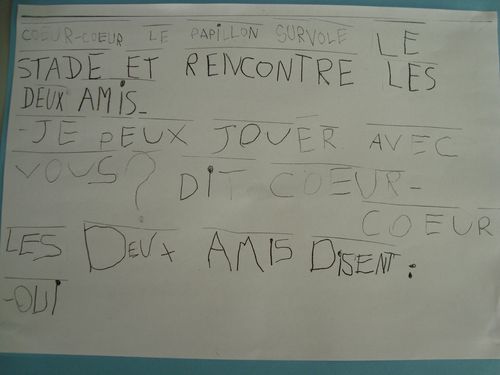 COEUR-COEUR LE PAPILLON SURVOLE LE
STADE ET RENCONTRE LES
DEUX AMIS_
-JE PEUX JOUER AVEC
VOUS? DIT COEUR-
COEUR
LES DEUX AMIS DISENT:
-OUI